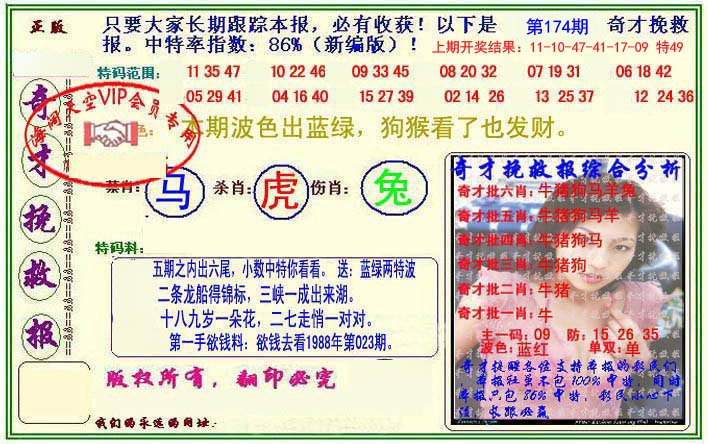 正版
只要大家长期跟踪本报，必有收获！以下是 第174期 奇才挽救
报。中特率指数：86%（新编版）！ 上期开奖结果：11-10-47-41-17-09 特49
特码范围： 11 35 47 10 22 46 09 33 45 08 20 32 07 19 31 06 18 42
05 29 41 04 16 40 15 27 39 02 14 26 13 25 37 12 24 36
天空VIP会员专用
色：本期波色出蓝绿，狗猴看了也发财。
奇才挽救报
禁肖： 马 杀肖： 虎 伤肖： 兔
特码料：
五期之内出六尾，小数中特你看看。 送：蓝绿两特波
二条龙船得锦标，三峡一成出来湖。
十八九岁一朵花，二七走悄一对对。
第一手欲钱料：欲钱去看1988年第023期。
版权所有，翻印必究
我们的永远的网址：
奇才挽救报综合分析
奇才批六肖：牛猪狗马羊兔
奇才批五肖：牛猪狗马羊
奇才批四肖：牛猪狗马
奇才批三肖：牛猪狗
奇才批二肖：牛猪
奇才批一肖：牛
主一码：09 防：15 26 35
波色：蓝红 单双：单
奇才提醒各位支持本报的彩民们
，本报社虽不包100%中特，同时
本报只包86%中特，彩民小心下
注，长跟必赢